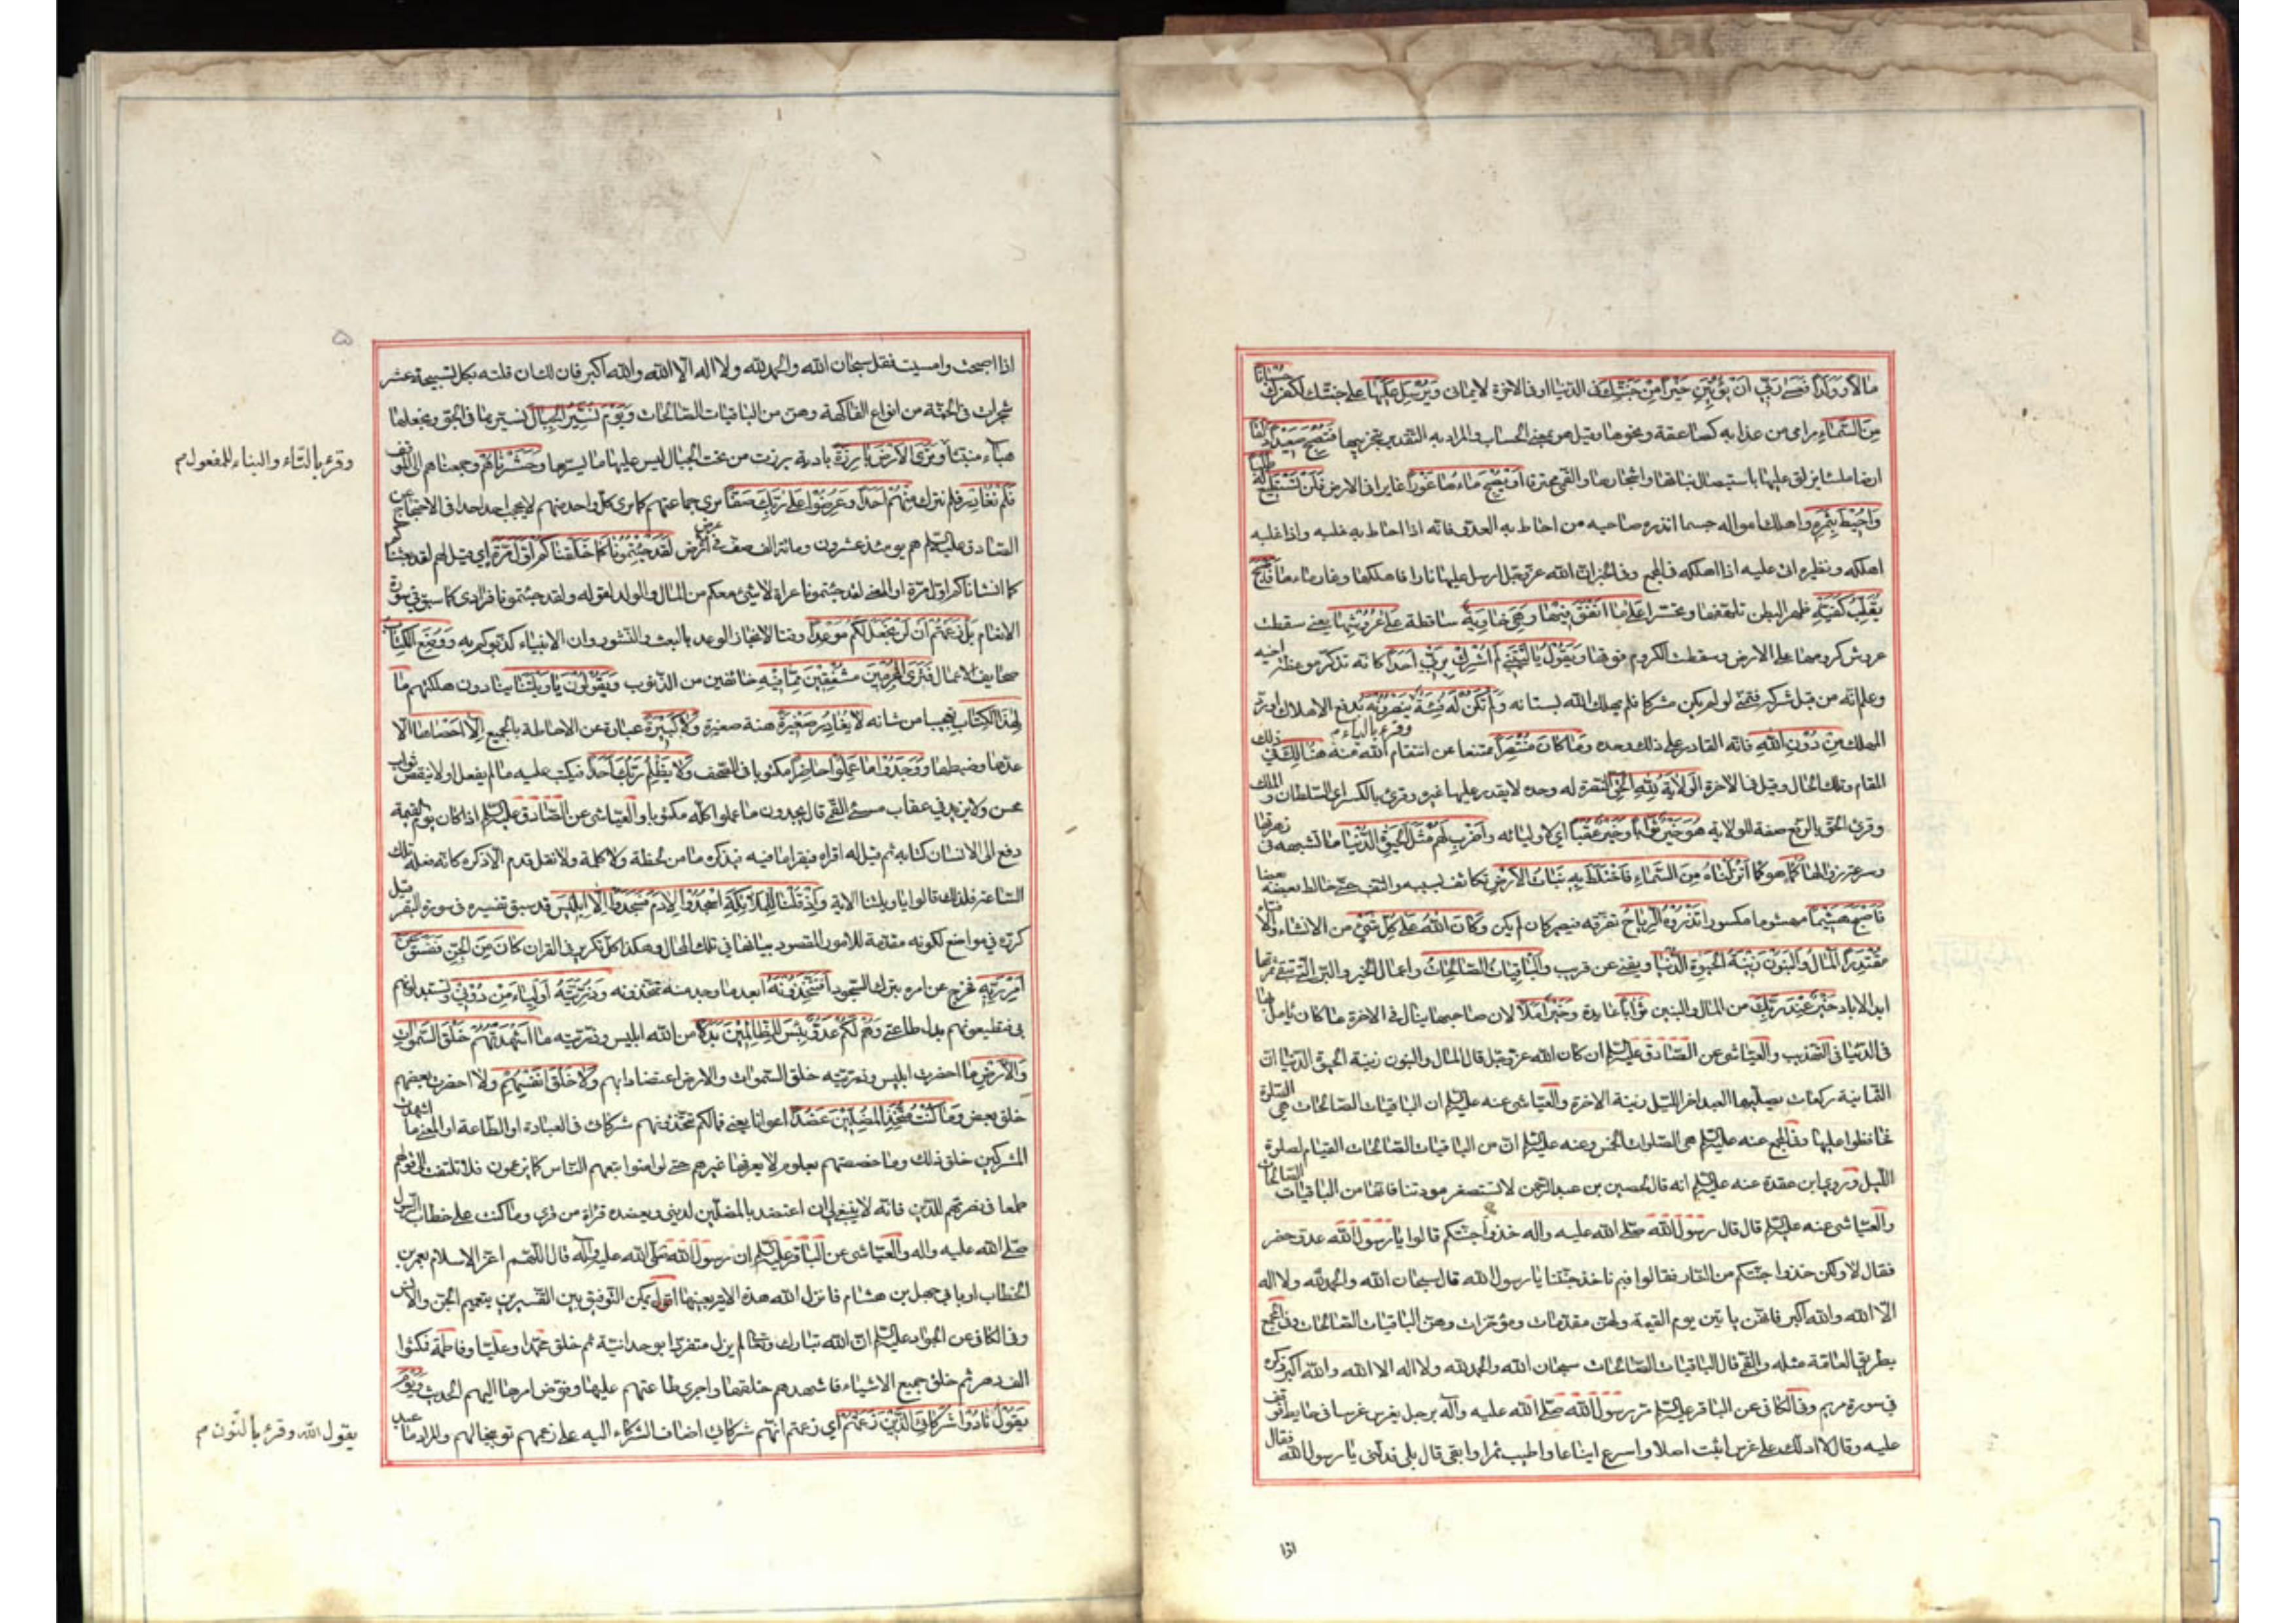 مالا وولدا فعسى ربي ان يؤتين خيرا من جنتك في الدنيا او في الاخرة لايماني ويرسل عليها على جنتك لكفرك حسبانا
من السماء مرامي من عذابه كصاعقة ونحوها وقيل هو بمعنى الحساب والمراد به التقدير بتخريبها فتصبح صعيدا زلقا
ارضا ملساء يزلق عليها باستيصال نباتها واشجارها والقمي محترقا او يصبح ماءها غورا غايرا في الارض فلن تستطيع له طلبا
واحيط بثمره واهلك امواله حسبما انذره صاحبه من احاط به العدو فانه اذا احاط به غلبه واذا غلبه
اهلكه ونظيره اتى عليه اذا اهلكه في المجمع وفي الخبر ان الله عز وجل ارسل عليها نارا فاهلكها وغار ماءها فاصبح
يقلب كفيه ظهر البطن تلهفها وتحسرا على ما انفق فيها وهي خاوية ساقطة على عروشها يعني سقطت
عروش كرومها على الارض وسقطت الكروم فوقها ويقول يا ليتني لم اشرك بربي احدا كانه تذكر موعظة اخيه
وعلم انه من قبل شركه فتمنى لو لم يكن مشركا فلم يهلك الله بستانه ولم تكن له فئة ينصرونه بدفع الاهلاك او رد
وقرء بالياء م
المهلك من دون الله فانه القادر على ذلك وحده وما كان منتصرا ممتنعا عن انتقام الله منه هنالك في ذلك
المقام وتلك الحال وقيل في الاخرة الولاية لله الحق النصرة له وحده لا يقدر عليها غيره وقرئ بالكسر اي السلطان والملك
وقرئ الحق بالرفع صفة للولاية هو خير ثوابا وخير عقبا اي لاوليائه واضرب لهم مثل الحيوة الدنيا ما تشبهه في زهرتها
وسرعة زوالها كما هو كماء انزلناه من السماء فاختلط به نبات الارض تكاثف بسببه والتف حتى خالط بعضه بعضا
فاصبح هشيما مهشوما مكسورا تذروه الرياح تفرقه فيصير كان لم يكن وكان الله على كل شيء من الانشاء والافناء
مقتدرا المال والبنون زينة الحيوة الدنيا ويفنى عن قريب والباقيات الصالحات واعمال الخير والبر التي تبقى ثمرتها
ابد الاباد خير عند ربك من المال والبنين ثوابا عائدة وخير املا لان صاحبها ينال في الاخرة ما كان يامل بها
في الدنيا في التهذيب والعياشي عن الصادق عليه السلم ان كان الله عز وجل قال المال والبنون زينة الحيوة الدنيا ان
الثمانية ركعات يصليها العبد اخر الليل زينة الاخرة والعياشي عنه عليه السلم ان الباقيات الصالحات هي الصلوة
فحافظوا عليها وفي المجمع عنه عليه السلم هي الصلوات الخمس وعنه عليه السلم ان من الباقيات الصالحات القيام لصلوة
الليل وروي ابن عقدة عنه عليه السلم انه قال لحصين بن عبد الرحمن لا تستصغر مودتنا فانها من الباقيات الصالحات
والعياشي عنه عليه السلم قال قال رسول الله صلى الله عليه واله خذوا جنتكم قالوا يا رسول الله عدو حضر
فقال لا ولكن خذوا جنتكم من النار فقالوا فيم ناخذ جنتنا يا رسول الله قال سبحان الله والحمد لله ولا اله
الا الله والله اكبر فانهن ياتين يوم القيمة ولهن مقدمات ومؤخرات وهن الباقيات الصالحات وفي المجمع
بطريق العامة مثله والقمي قال الباقيات الصالحات سبحان الله والحمد لله ولا اله الا الله والله اكبر ذكره
في سورة مريم وفي الكافي عن الباقر عليه السلم مر رسول الله صلى الله عليه وآله برجل يغرس غرسا في حايط فوقف
عليه وقال الا ادلك على غرس اثبت اصلا واسرع ايناعا واطيب ثمرا وابقى قال بلى فدلني يا رسول الله فقال
اذا
اذا اصبحت وامسيت فقل سبحان الله والحمد لله ولا اله الا الله والله اكبر فان لك ان قلته بكل تسبيحة عشر
شجرات في الجنة من انواع الفاكهة وهن من الباقيات الصالحات ويوم نسير الجبال نسير بها في الجو ونجعلها
وقرء بالتاء والبناء للمفعول م
هباء منبثا وترى الارض بارزة بادية برزت من تحت الجبال ليس عليها ما يسترها وحشرناهم وجمعناهم الى الموقف
فلم نغادر فلم نترك منهم احدا وعرضوا على ربك صفا يرى جماعتهم كما يرى كل واحد منهم لا يحجب احد احدا في الاحتجاج عن
الصادق عليه السلم هم يومئذ عشرون ومائة الف صف في عرض الارض لقد جئتمونا كما خلقناكم اول مرة اي قيل لهم لقد بعثناكم
كما انشاناكم اول مرة او المعنى لقد جئتمونا عراة لا شيئ معكم من المال والولد لقوله ولقد جئتمونا فرادى كما سبق في سورة
الانعام بل زعمتم ان لن نجعل لكم موعدا وقتا لانجاز الوعد بالبعث والنشور وان الانبياء كذبوكم به ووضع الكتاب
صحايف الاعمال فترى المجرمين مشفقين مما فيه خائفين من الذنوب ويقولون يا ويلتنا ينادون هلكتهم ما
لهذا الكتاب تعجبا من شانه لا يغادر صغيرة هنة صغيرة ولا كبيرة عبارة عن الاحاطة بالجميع الا احصاها الا
عدها وضبطها ووجدوا ما عملوا حاضرا مكتوبا في الصحف ولا يظلم ربك احدا فيكتب عليه ما لم يفعل او لا ينقص ثواب
محسن ولا يزيد في عقاب مسئ القمي قال يجدون ما عملوا كله مكتوبا والعياشي عن الصادق عليه السلم اذا كان يوم القيمة
دفع الى الانسان كتابه ثم قيل له اقراه فيقرا ما فيه فيذكره فما من لحظة ولا كلمة ولا نقل قدم الا ذكره كانه فعله تلك
الساعة فلذلك قالوا يا ويلتنا الاية واذ قلنا للملائكة اسجدوا لادم فسجدوا الا ابليس قد سبق تفسيره في سورة البقرة قيل
كرره في مواضع لكونه مقدمة للامور المقصود بيانها في تلك المحال وهكذا كل تكرير في القران كان من الجن ففسق عن
امر ربه فخرج عن امره بترك السجود افتتخذونه ابعد ما وجد منه تتخذونه وذريته اولياء من دوني وتستبدلونهم
بي فتطيعونهم بدل طاعتي وهم لكم عدو بئس للظالمين بدلا من الله ابليس وذريته ما اشهدتهم خلق السموات
والارض ما احضرت ابليس وذريته خلق السموات والارض اعتضادا بهم ولا خلق انفسهم ولا احضرت بعضهم
خلق بعض وما كنت متخذ المضلين عضدا اعوانا يعني فما لكم تتخذونهم شركاء في العبادة او الطاعة او المعنى ما اشهدت
المشركين خلق ذلك وما خصصتهم بعلوم لا يعرفها غيرهم حتى لو امنوا اتبعهم الناس كما يزعمون فلا تلتفت الى قولهم
طمعا في نصرتهم للدين فانه لا ينبغي لي ان اعتضد بالمضلين لديني ويعضده قراءة من قرئ وما كنت على خطاب الرسول
صلى الله عليه واله والعياشي عن الباقر عليه السلم ان رسول الله صلى الله عليه وآله قال اللهم اعز الاسلام بعمر بن
الخطاب او بابي جهل بن هشام فانزل الله هذه الاية بعينها اقول يمكن التوفيق بين التفسيرين بتعميم الجن والانس
وفي الكافي عن الجواد عليه السلم ان الله تبارك وتعالى لم يزل متفردا بوحدانيته ثم خلق محمدا وعليا وفاطمة فمكثوا
الف دهر ثم خلق جميع الاشياء فاشهدهم خلقها واجرى طاعتهم عليها وفوض امرها اليهم الحديث ويوم
يقول نادوا شركائي الذين زعمتم اي زعمتم انهم شركائي اضاف الشركاء اليه على زعمهم توبيخا لهم والمراد ما عبد
يقول الله وقرء بالنون م